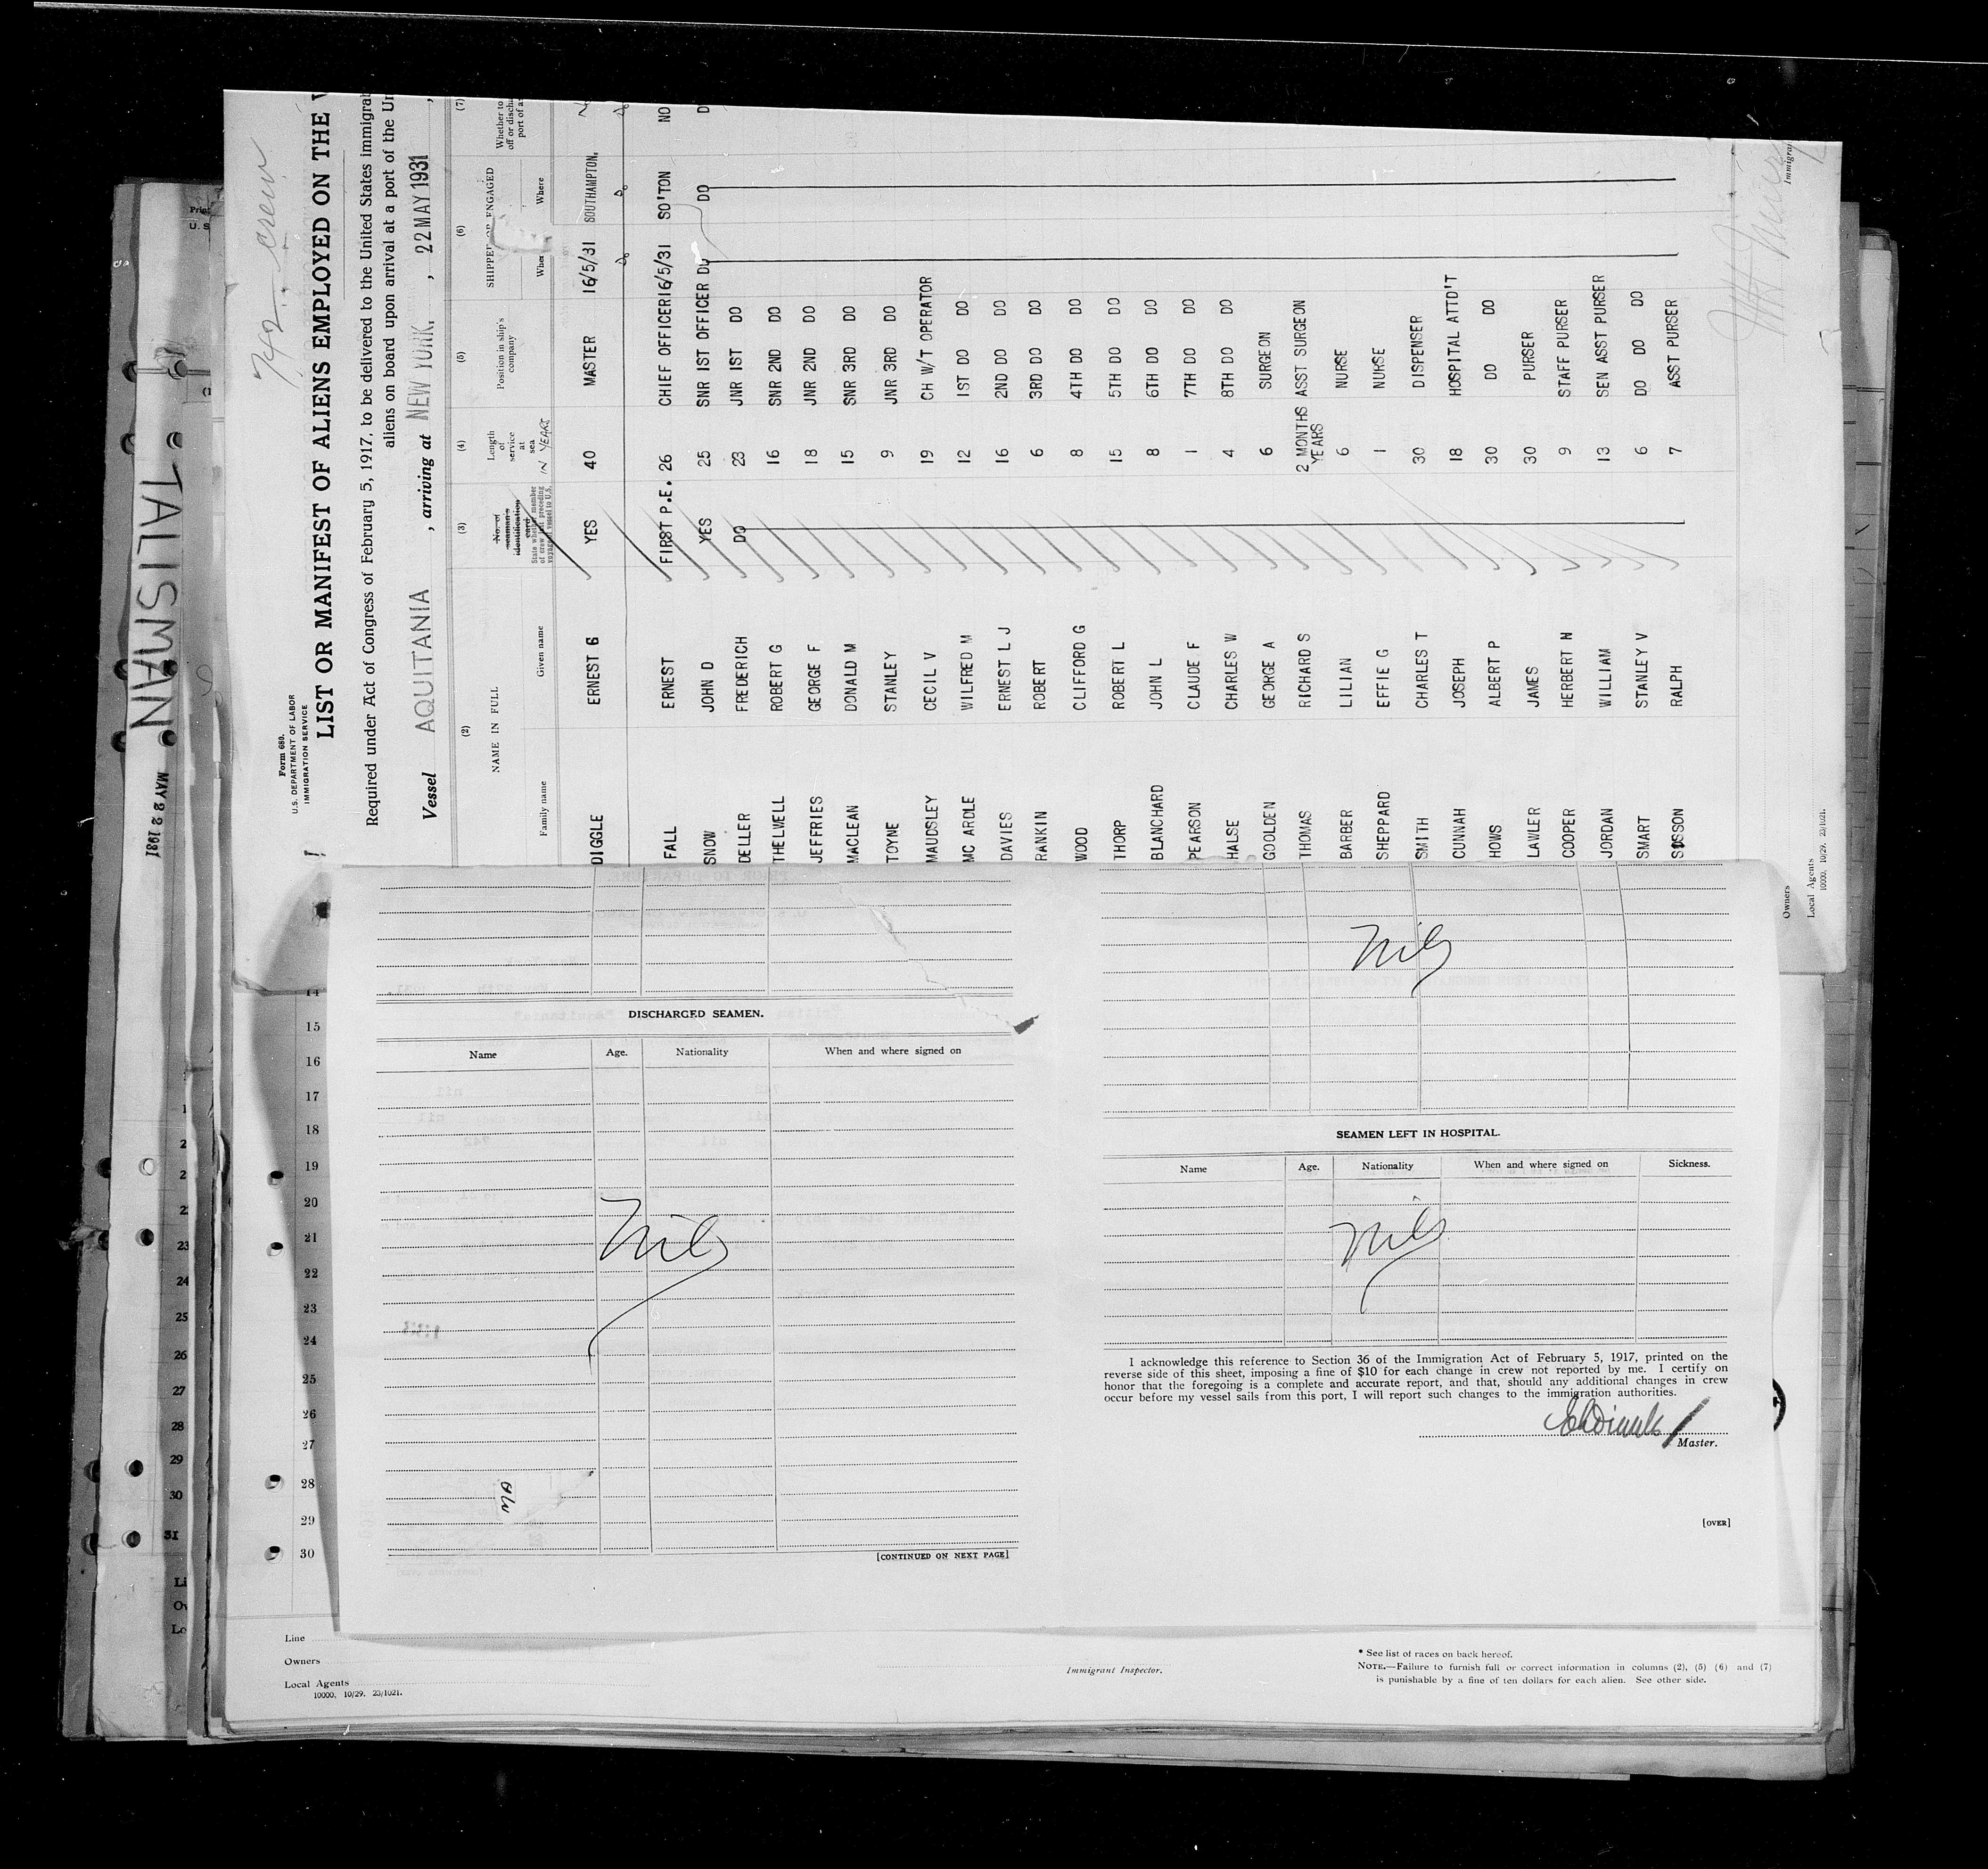 742 crew
Form 680.
U.S. DEPARTMENT OF LABOR
IMMIGRATION SERVICE
LIST OR MANIFEST OF ALIENS EMPLOYED ON THE
Required under Act of Congress of February 5, 1917, to be delivered to the United States immigrat
aliens on board upon arrival at a port of the Un
Vessel AQUITANIA , arriving at NEW YORK. , 22 MAY 1931 ,
(2) (3) (4) (5) (6) (7)
NAME IN FULL
Family name Given name
No. of seaman's identification card
State whether member of crew last preceding voyage of vessel to U.S.
Length of service at sea IN YEARS
Position in ship's company
SHIPPED OR ENGAGED
When Where
Whether to
off or discha
port of a
DIGGLE ERNEST G YES 40 MASTER 16/5/31 SOUTHAMPTON.
FALL ERNEST FIRST P.E. 26 CHIEF OFFICER 16/5/31 SO'TON NO
SNOW JOHN D YES 25 SNR 1ST OFFICER DO DO D
DELLER FREDERICH DO 23 JNR 1ST DO
THELWELL ROBERT G 16 SNR 2ND DO
JEFFRIES GEORGE F 18 JNR 2ND DO
MACLEAN DONALD M 15 SNR 3RD DO
TOYNE STANLEY 9 JNR 3RD DO
MAUDSLEY CECIL V 19 CH W/T OPERATOR
MC ARDLE WILFRED M 12 1ST DO DO
DAVIES ERNEST L J 16 2ND DO DO
RANKIN ROBERT 6 3RD DO DO
WOOD CLIFFORD G 8 4TH DO DO
THORP ROBERT L 15 5TH DO DO
BLANCHARD JOHN L 8 6TH DO DO
PEARSON CLAUDE F 1 7TH DO DO
HALSE CHARLES W 4 8TH DO DO
GOOLDEN GEORGE A 6 SURGEON
THOMAS RICHARD S 2 MONTHS ASST SURGEON
YEARS
BARBER LILIAN 6 NURSE
SHEPPARD EFFIE G 1 NURSE
SMITH CHARLES T 30 DISPENSER
CUNNAH JOSEPH 18 HOSPITAL ATTD'T
HOWS ALBERT P 30 DO DO
LAWLER JAMES 30 PURSER
COOPER HERBERT N 9 STAFF PURSER
JORDAN WILLIAM 13 SEN ASST PURSER
SMART STANLEY V 6 DO DO DO
SISSON RALPH 7 ASST PURSER
Owners
Local Agents
10000. 10/29. 23/1021.
TALISMAN
MAY 22 1931
DISCHARGED SEAMEN.
Name Age. Nationality When and where signed on
Nil
[CONTINUED ON NEXT PAGE]
Nil
SEAMEN LEFT IN HOSPITAL.
Name Age. Nationality When and where signed on Sickness.
Nil
I acknowledge this reference to Section 36 of the Immigration Act of February 5, 1917, printed on the
reverse side of this sheet, imposing a fine of $10 for each change in crew not reported by me. I certify on
honor that the foregoing is a complete and accurate report, and that, should any additional changes in crew
occur before my vessel sails from this port, I will report such changes to the immigration authorities.
Master.
[OVER]
14
15
16
17
18
19
20
21
22
23
24
25
26
27
28
29
30
23
24
25
26
27
28
29
30
31
Line
Owners
Local Agents
10000. 10/29. 23/1021.
Immigrant Inspector.
* See list of races on back hereof.
NOTE.—Failure to furnish full or correct information in columns (2), (5) (6) and (7)
is punishable by a fine of ten dollars for each alien. See other side.